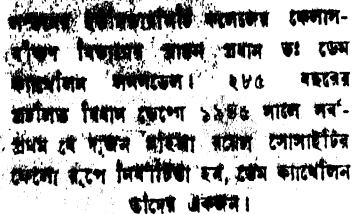 লন্ডনের ইউনিভার্সিটি কলেজের কেলাস-
বিভাগের প্রধান ডঃ ডেম
ক্যাথলিন লনসডেল। ২৮৫ বছরের
প্রচলিত বিধান ভেঙ্গে ১৯৪৫ সালে সর্ব-
প্রথম যে দু'জন মহিলা রয়েল সোসাইটির
ফেলো রূপে নির্বাচিতা হন, ডেম ক্যাথলিন
তাঁদের একজন।